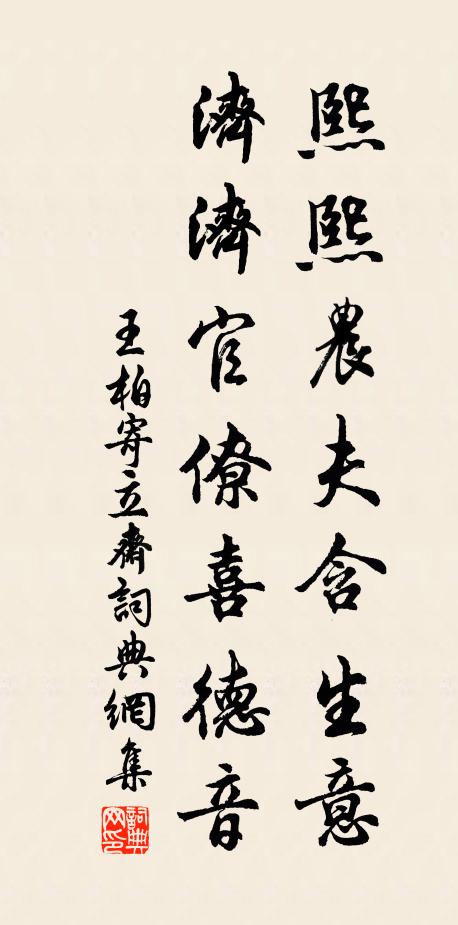 熙熙農夫含生意
濟濟官僚喜德音
王柏寄立齋詞典網集
詞典網印